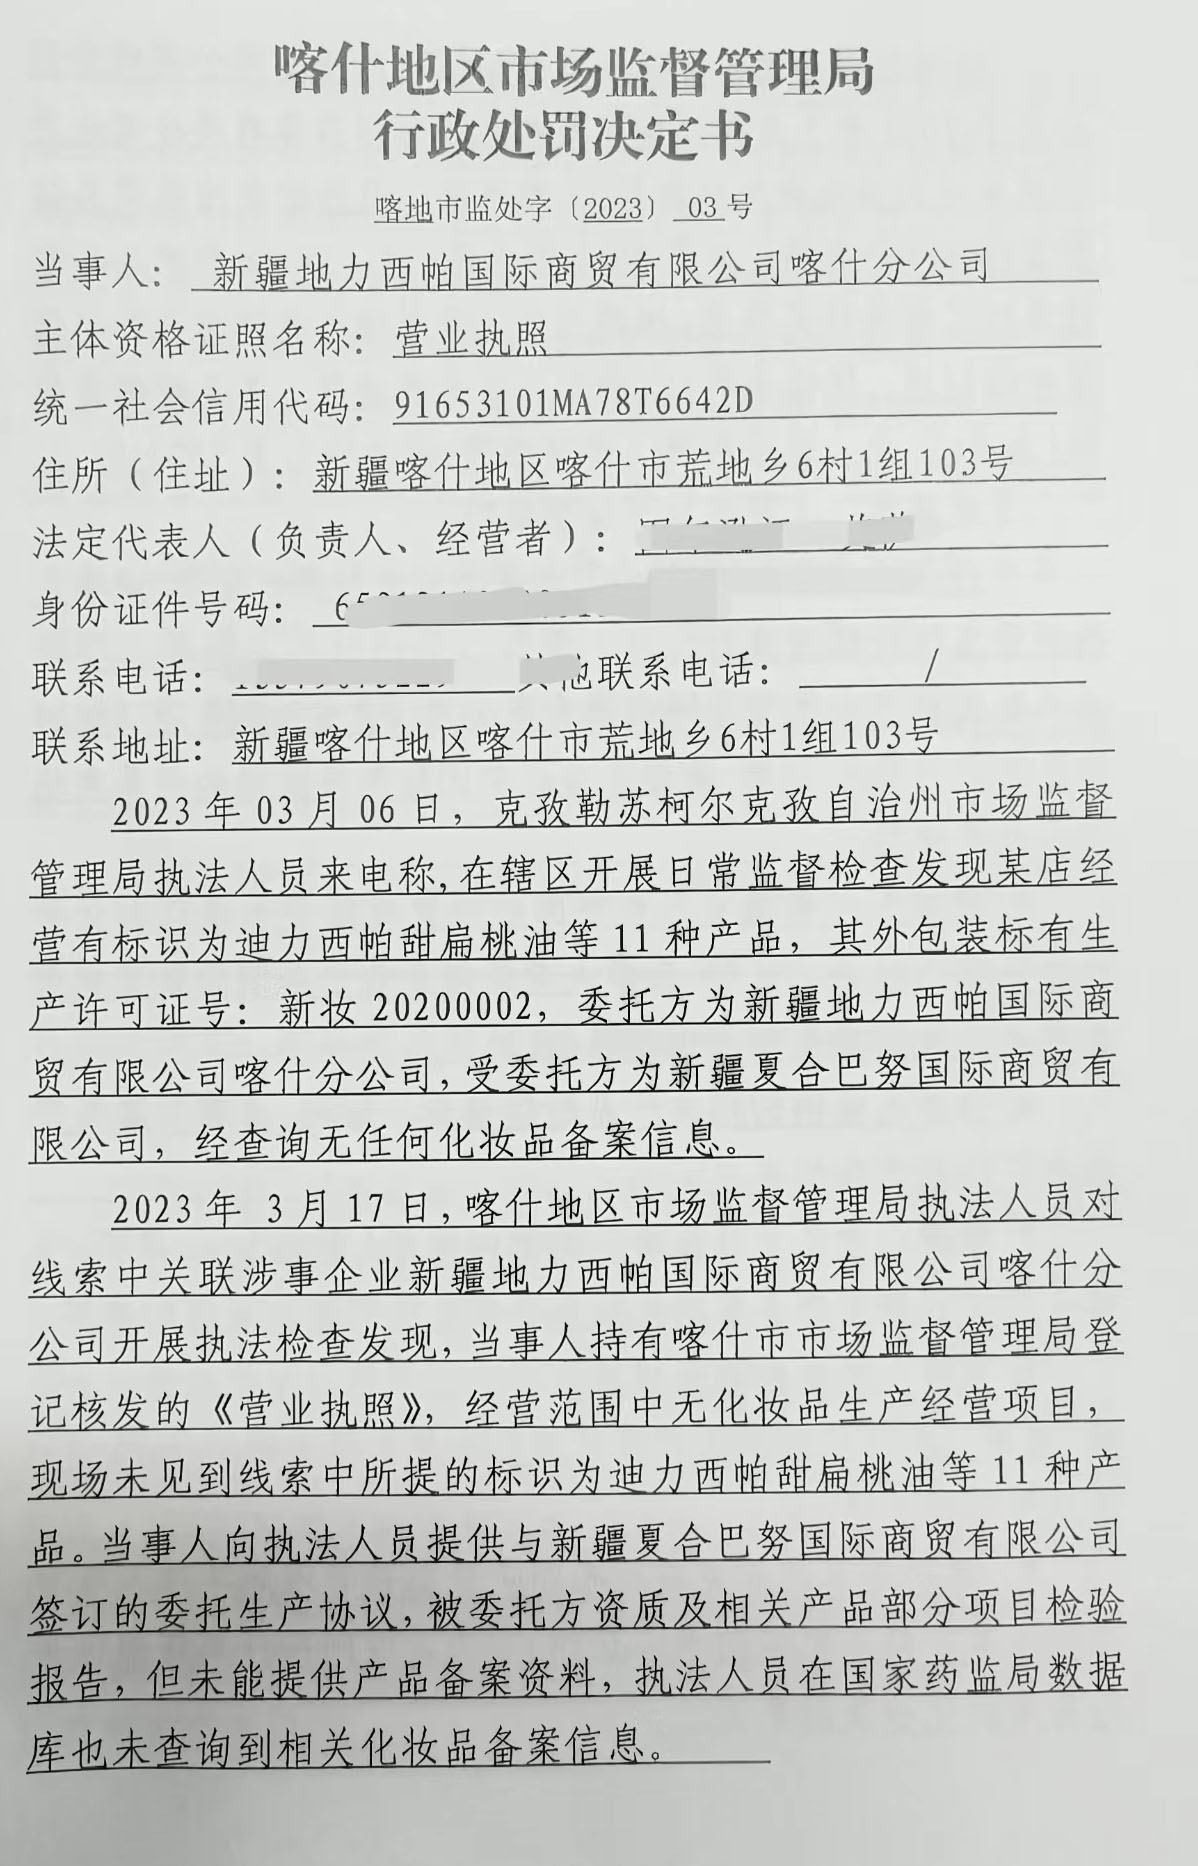 喀什地区市场监督管理局
行政处罚决定书
喀地市监处字〔2023〕 03 号
当事人: 新疆地力西帕国际商贸有限公司喀什分公司
主体资格证照名称: 营业执照
统一社会信用代码: 91653101MA78T6642D
住所（住址）: 新疆喀什地区喀什市荒地乡6村1组103号
法定代表人（负责人、经营者）:
身份证件号码:
联系电话: 其他联系电话: /
联系地址: 新疆喀什地区喀什市荒地乡6村1组103号
2023 年 03 月 06 日，克孜勒苏柯尔克孜自治州市场监督
管理局执法人员来电称,在辖区开展日常监督检查发现某店经
营有标识为迪力西帕甜扁桃油等 11 种产品，其外包装标有生
产许可证号: 新妆 20200002，委托方为新疆地力西帕国际商
贸有限公司喀什分公司,受委托方为新疆夏合巴努国际商贸有
限公司，经查询无任何化妆品备案信息。
2023 年 3 月 17 日,喀什地区市场监督管理局执法人员对
线索中关联涉事企业新疆地力西帕国际商贸有限公司喀什分
公司开展执法检查发现，当事人持有喀什市市场监督管理局登
记核发的《营业执照》，经营范围中无化妆品生产经营项目，
现场未见到线索中所提的标识为迪力西帕甜扁桃油等 11 种产
品。当事人向执法人员提供与新疆夏合巴努国际商贸有限公司
签订的委托生产协议,被委托方资质及相关产品部分项目检验
报告，但未能提供产品备案资料，执法人员在国家药监局数据
库也未查询到相关化妆品备案信息。